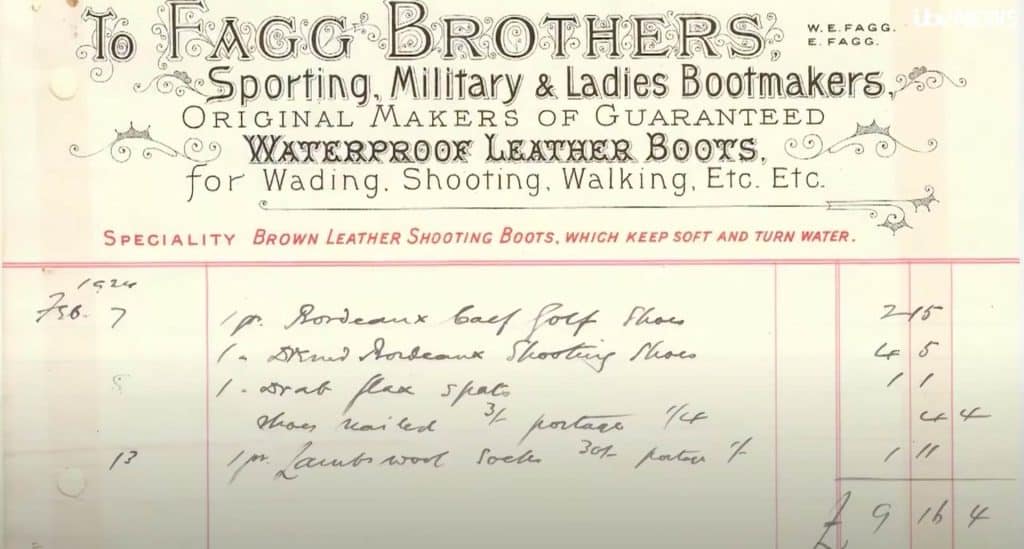 ube NEWS
To Fagg Brothers,
W. E. FAGG.
E. FAGG.
Sporting, Military & Ladies Bootmakers,
Original Makers of Guaranteed
Waterproof Leather Boots,
for Wading, Shooting, Walking, Etc. Etc.
Speciality Brown Leather Shooting Boots, which keep soft and turn water.
1924
Feb. 7 1 pr. Bordeaux Calf Golf Shoes 2 15
1 " Bordeaux Shooting Shoes 4 5
8 1 " Drab flax spats 1 1
shoes nailed 3/- portage 1/4 4 4
13 1 pr. Lambs wool socks 30/- portage 1/- 1 11
£ 9 16 4